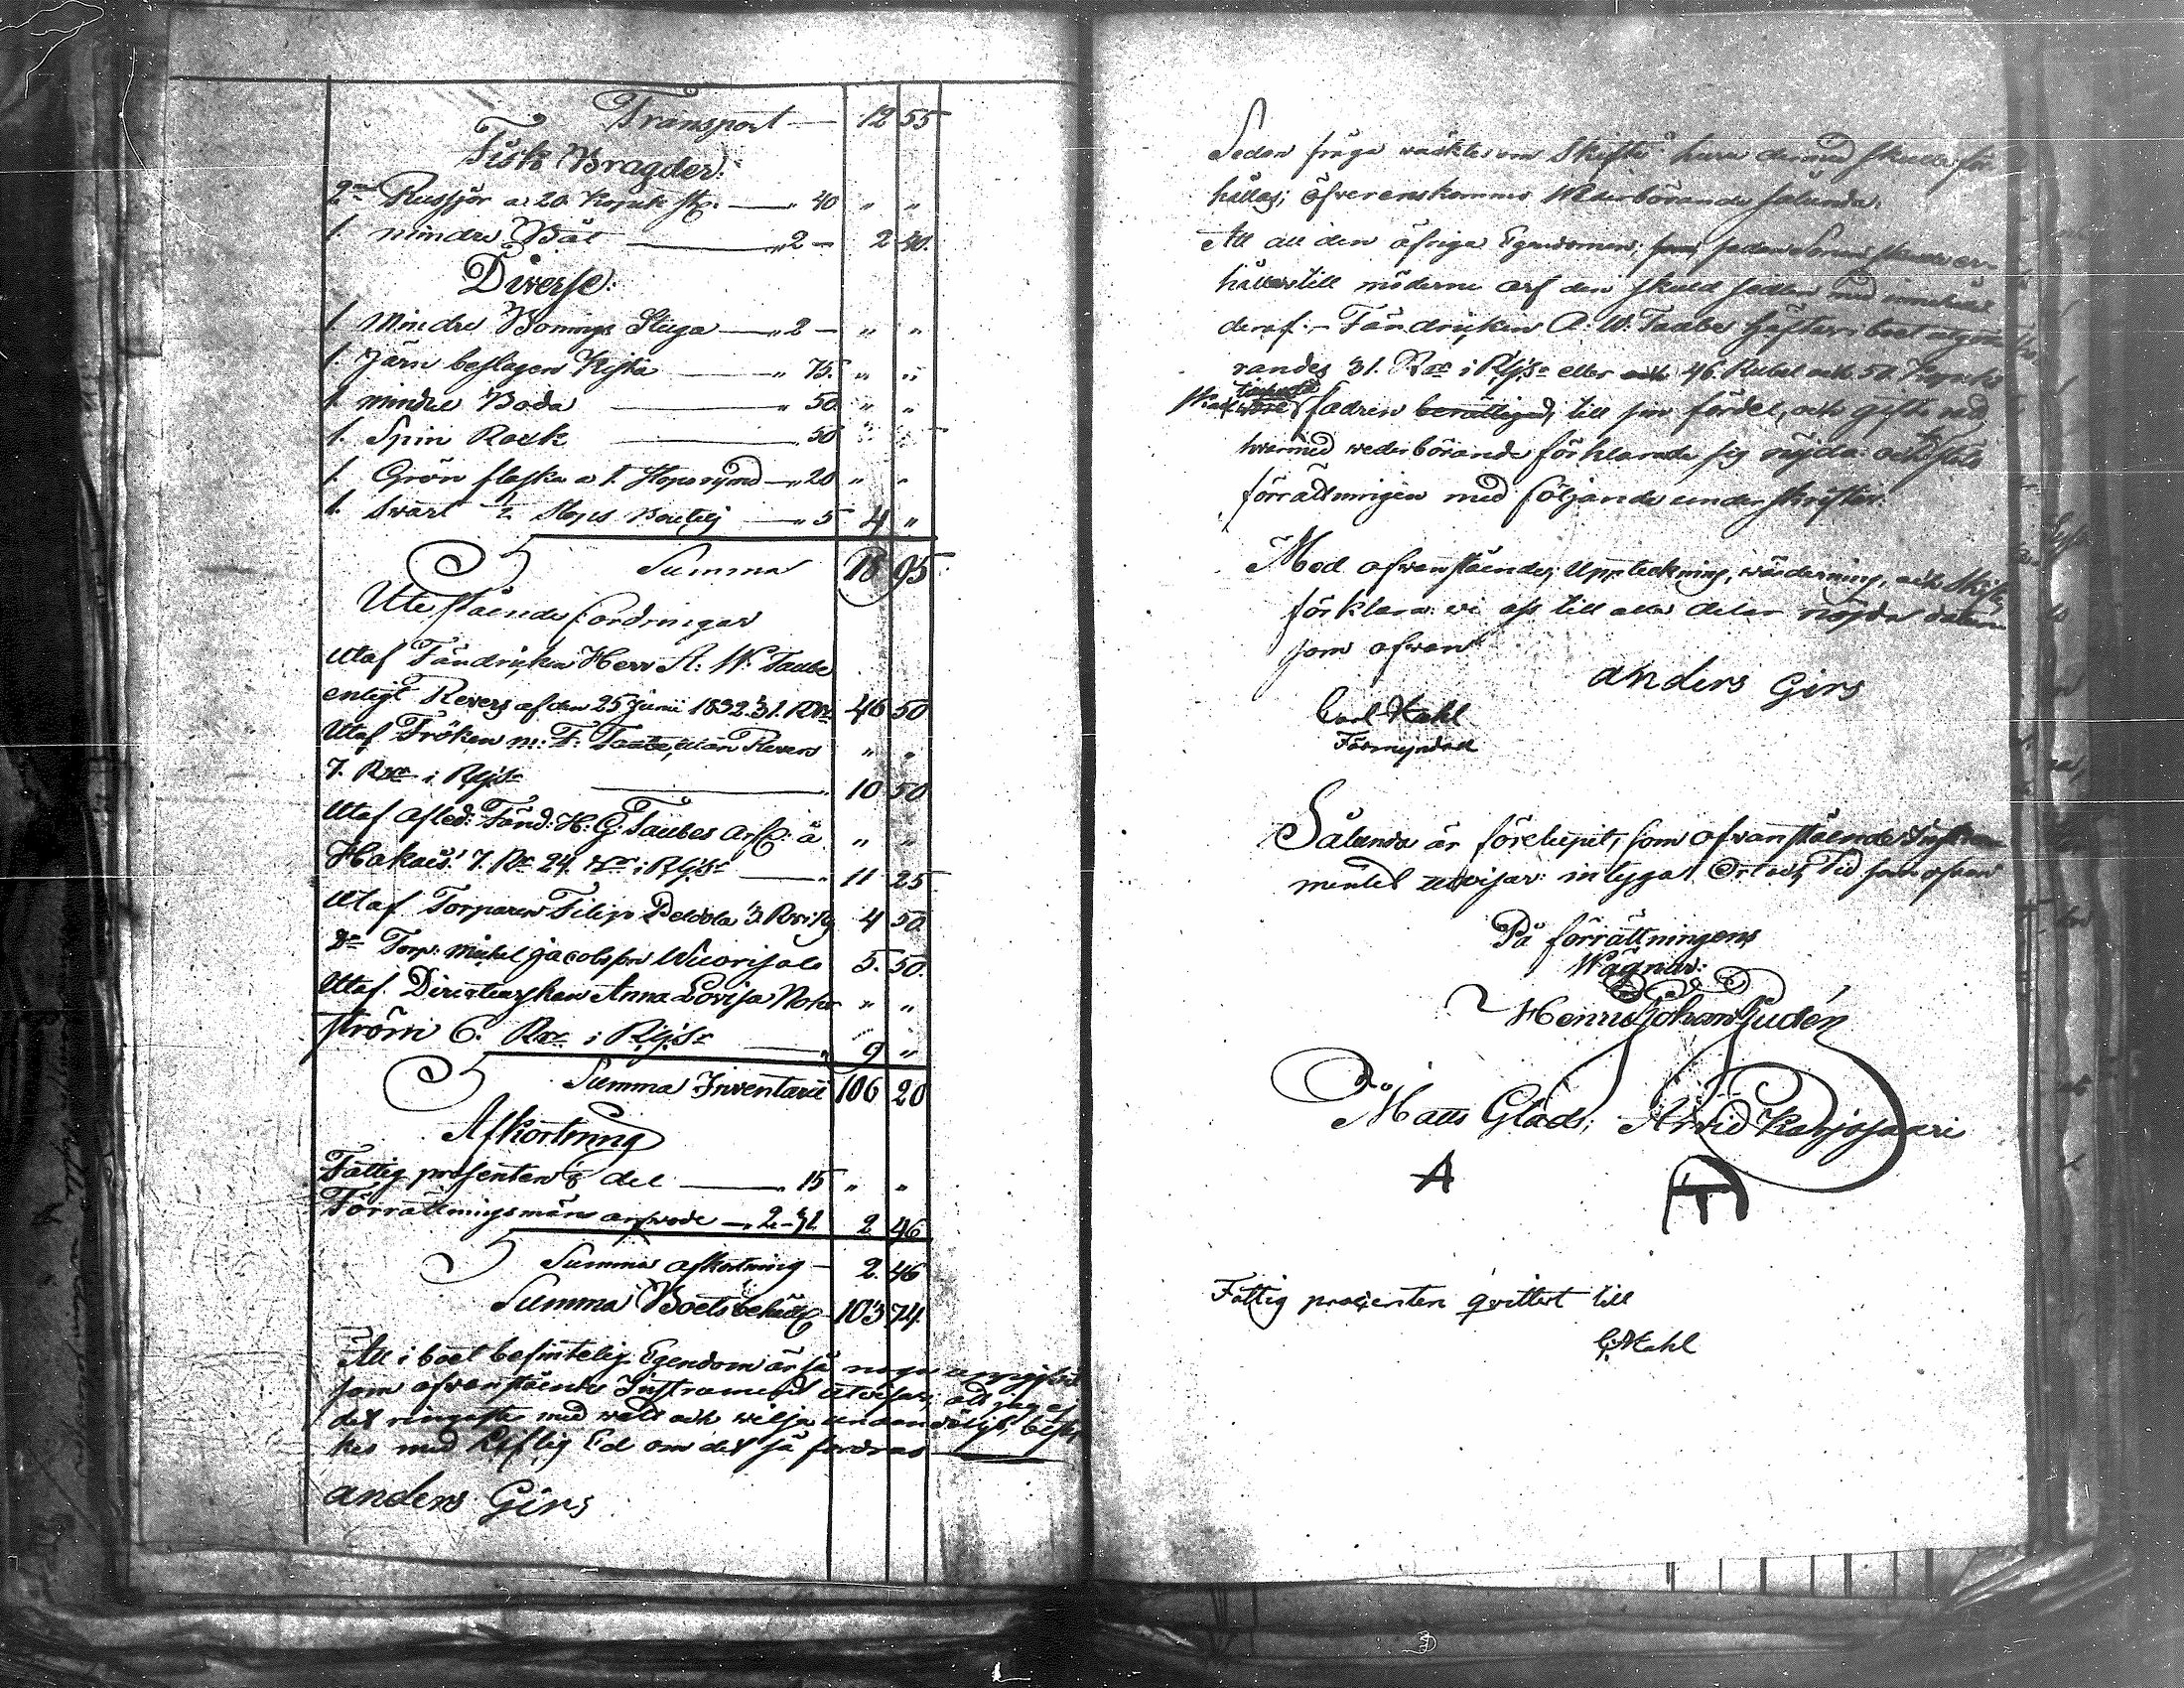 Transport — 12 55
Fisk Bragder:
2ne Ryssjor a 20 Kopek st. — " 40 " "
1. mindre Båt — " 2 — 2 40.
Diverse:
1. Mindre Bonings Stuga — " 2 — " "
1. Järn beslagen Kista — " 75. " "
1. mindre Boda — " 50 " "
1. Spin Rock — " 50 " "
1. Grön flaska a 1. Stops rymd — " 20 " "
1. Svart ½ Stops Boutelj — " 5 4 "
Summa 18 95
Utestående fordringar
Utaf Fändricken Herr A: W: Taube
enligt Revers af den 25 Junii 1832. 31. Rdr 46 50
Utaf Fröken m: F: Taube, utan Revers " "
7. Rdr i Rgs — 10 50
Utaf Afled: Fänd: H: G: Taubes Arf: å " "
Hakais! 7. Rr 24. i Rgs — 11 25
Utaf Torparen Filip 3. R 4 50
Do Torp: Mickel Jacobsson Wuorisalo 5. 50.
Utaf Anna Lovisa Nord " "
ström 6. Rdr i Rgs — 9 "
Summa Inventarii 106 20
Afkortning
Fattig procenten ⅛ del — " 15 " "
Förrättningsmäns arfvode — " 2 — 2 46
Summa afkortning — 2. 46
Summa Boets behåll 103 74.
All i boet befintelig Egendom är så noga uppgifvit
som ofvanstående Instrument utvisar, att jag ej
det ringaste med vett och vilja undandöljt,
kes med Liflig Ed om det så fordras
anders Girs
Sedan fråga väcktes om Skifte huru dermed skulle för
hållas; öfverenskommo Wederbörande sålunda:
Att all den öfriga Egendomen; sedan
till möderne arf den skuld sedlen med
deraf: — Fändricken A: W: Taube häfter i boet
randes 31. Rdr i Rgs eller 46. Rubel och 50. Kopek
fadren berättigad till sin fördel, och
hvarmed wederbörande förklarade sig nöjda och
förrättningen med följande underskrifter.
Med ofvanstående Uppteckning, värdering, och Skifte,
förklara vi oss till alla delar nöjda
som ofvan
anders Girs
Carl Stahl
Förmyndare
Sålunda är förelupit, som ofvanstående Instru
mentet utvisar: intygar Ort och Tid som ofvan
På förrättningens
Wägnar:
Henric Johan Judén
Matts Glads; Arvid Karjasaari
A
Fattig procenten qvittert till
C: Stahl